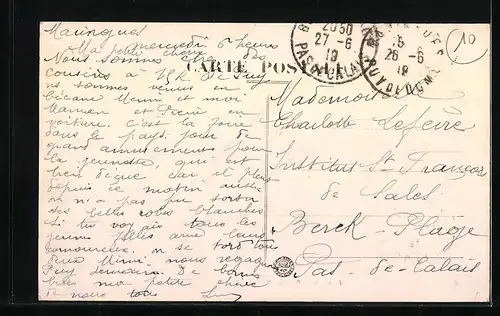 Maringues
mercredi 6 heures
Ma petite
Nous sommes chez des
cousins à
ns sommes venus en
bécane Mimi et moi
Maman et en
voiture. c'est la foire
dans le pays. jour de
grand amusement pour
la jeunesse, qui est
bien car il pleut
depuis ce matin aussi
on n'a pas pu sortir
ses belles robes blanches
Si tu voyais tous les
jeunes filles avec leurs
amoureux. n se tord tou
deux Mimi. nous regagnons
Puy demain. De bons
bises ma petite chérie
de nous tous
CARTE POSTALE
20 50
27 - 6
19
PAS-DE-CALAIS
26 - 6
19
PUY-DE-DÔME
10
Mademoiselle
Charlotte Lefèvre
Institut St François
de Sales
Berck-Plage
Pas-de-Calais